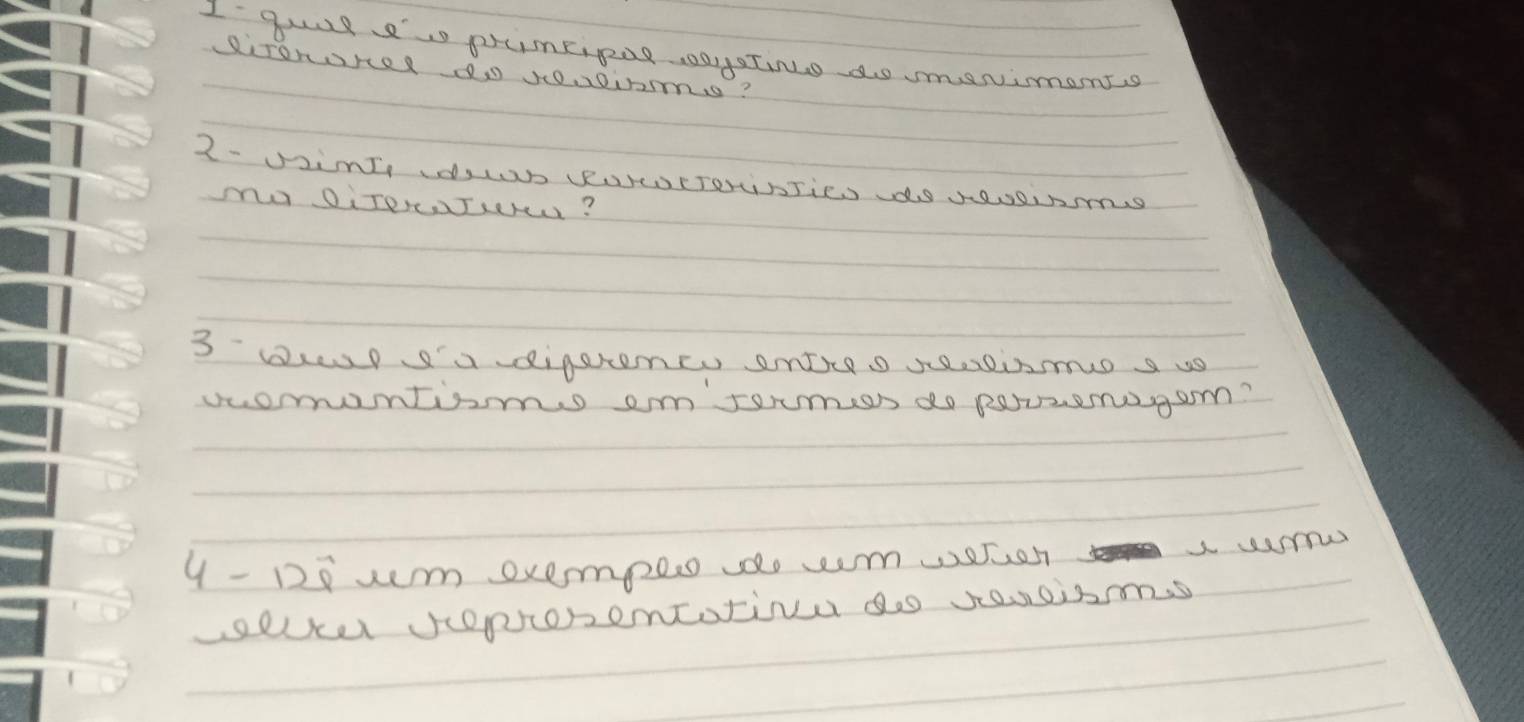 1- qual é o principal objetivo do movimento
literares do realismo?
2- cinte duas caracteristica do realismo
na literatura?
3- Qual é a diferença entre o realismo e o
romantismo em termos de personagem?
4- Dê um exemplo de um autor e uma
obra representativa do realismo